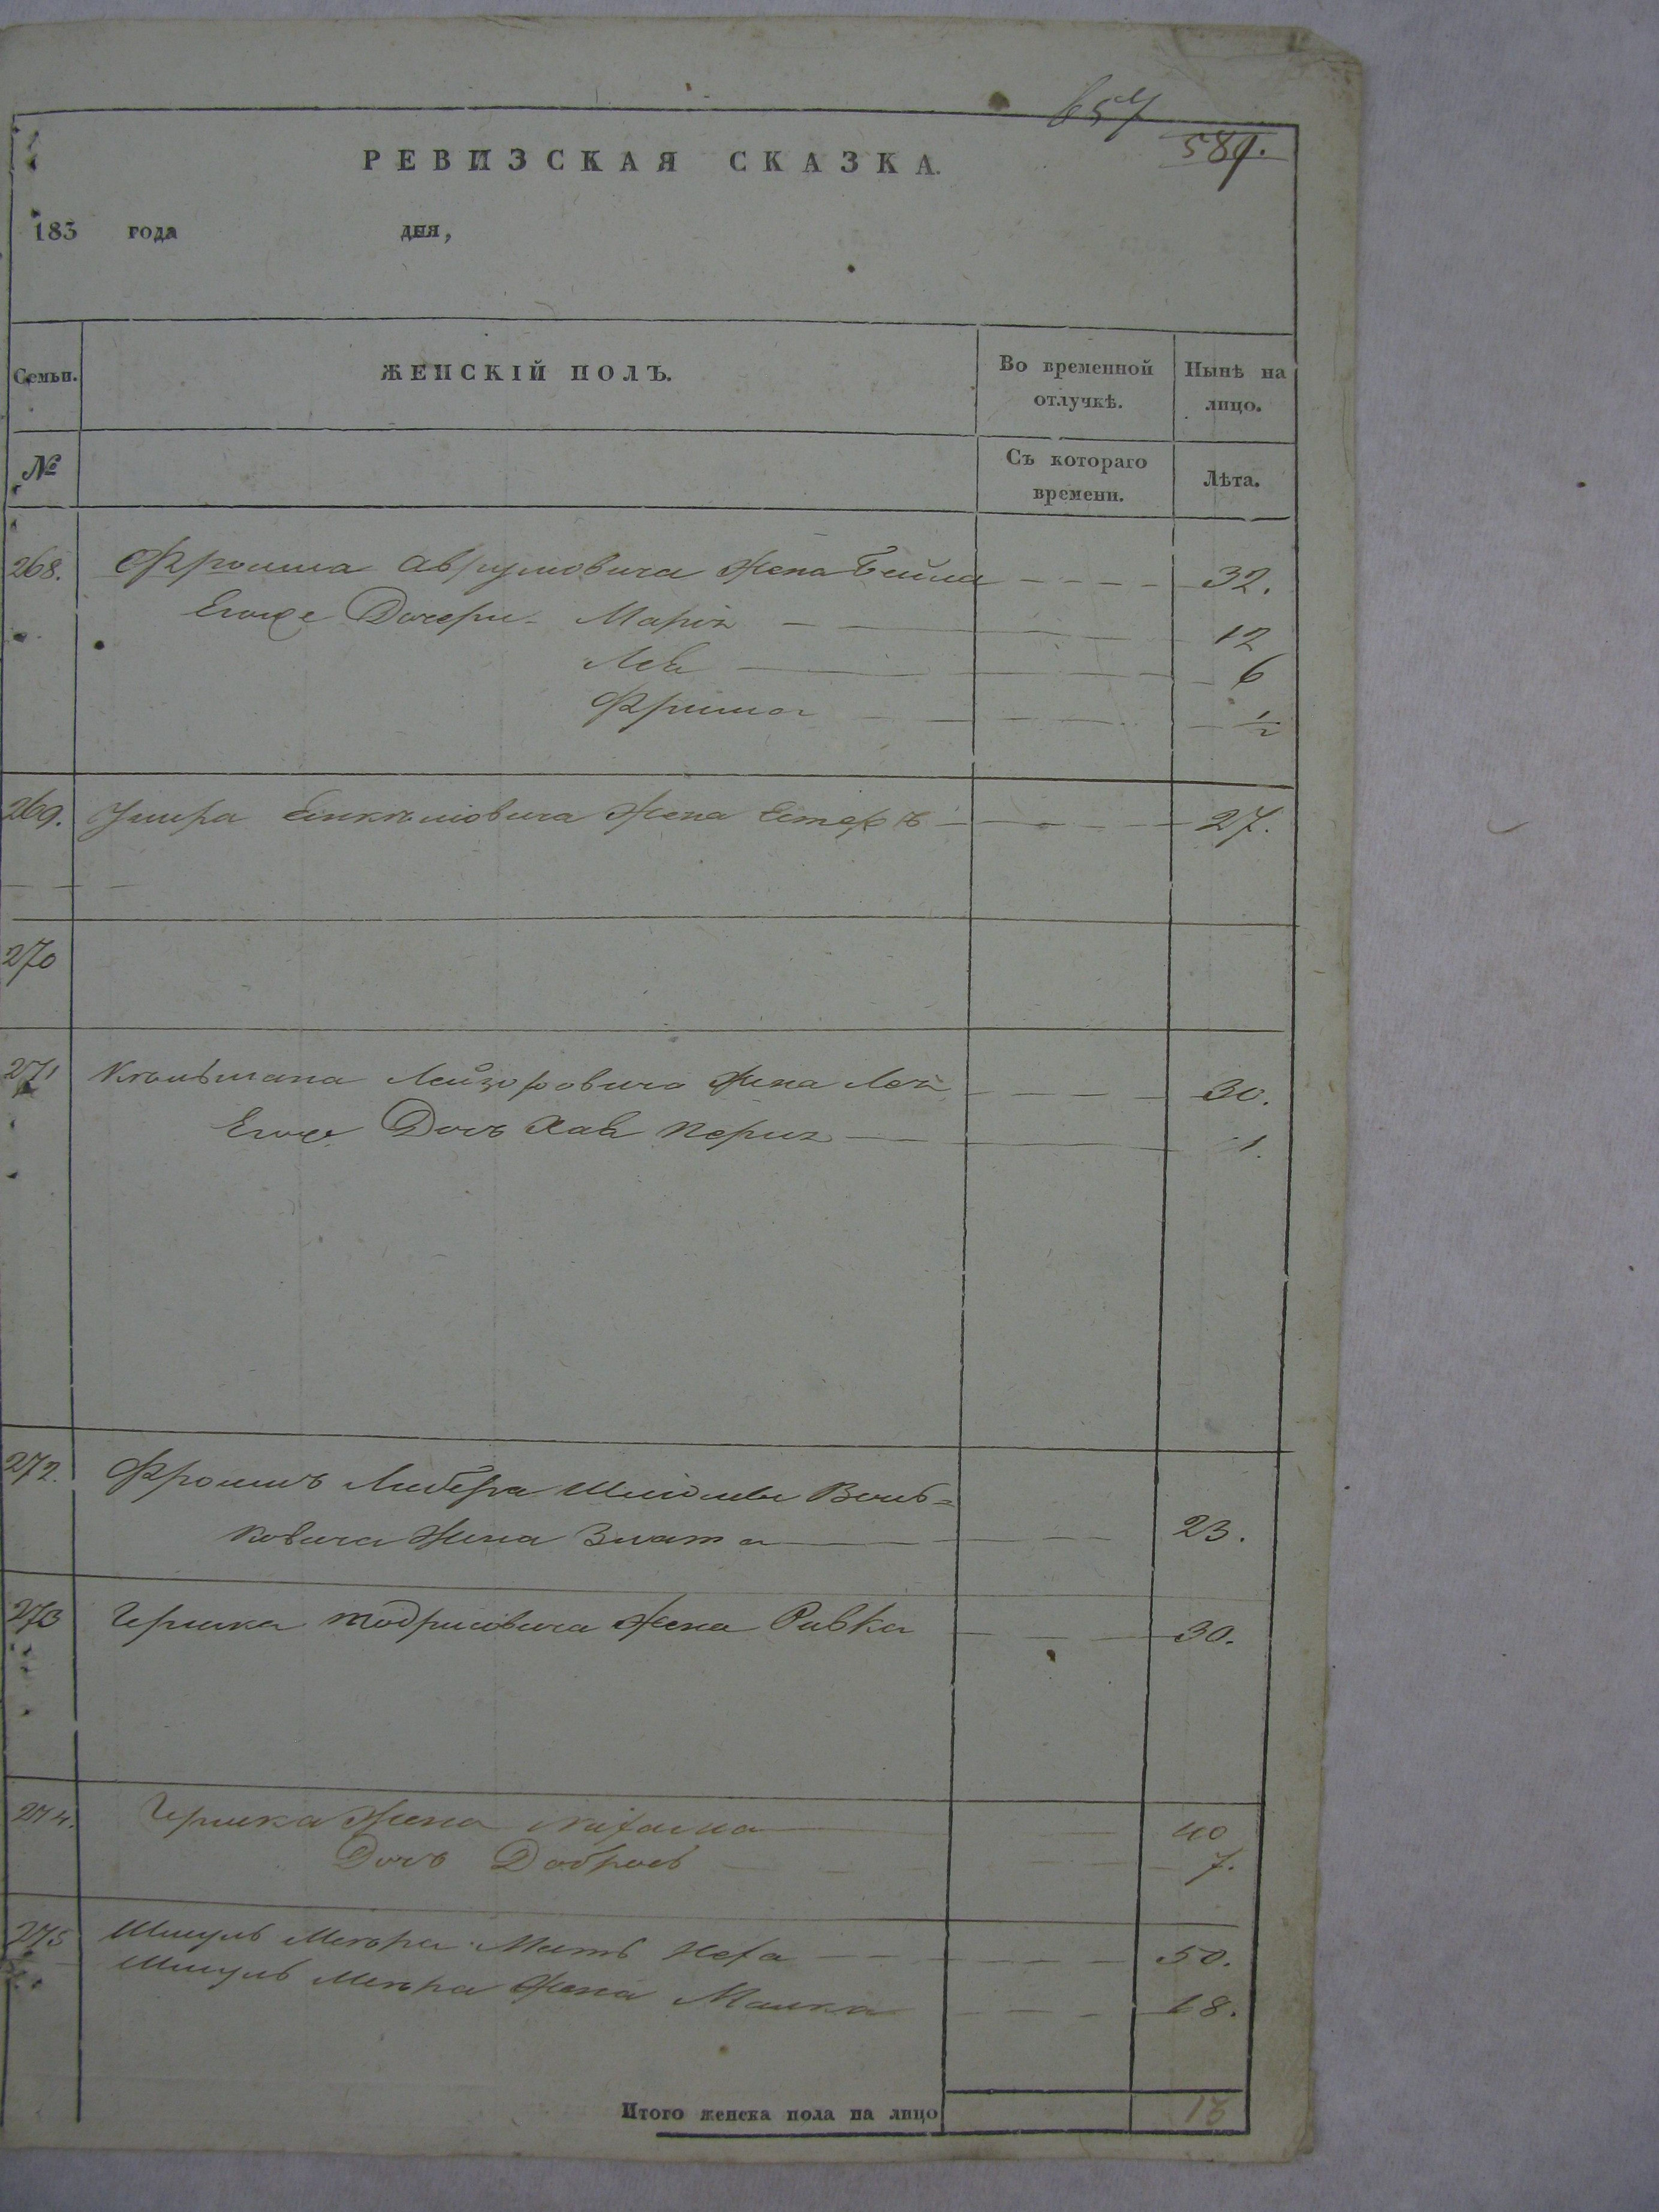 657
589.
РЕВИЗСКАЯ СКАЗКА.
183 года дня,
Семьи. ЖЕНСКІЙ ПОЛЪ. Во временной отлучкѣ. Нынѣ на лицо.
№ Съ котораго времени. Лѣта.
268. Фроима Аврумовича Жена Бейла 32.
Егоже Дочери Марія 12
Лея 6
Фрима ½
269. Жена Естеръ 27.
270
271 Кельмана Лейзоровича Жена Лея 30.
Егоже Дочь Хая Перля 1.
272. Фроимъ Либера Шмойлы Воль=
ковича Жена Злата 23.
273 Гершка Тодрисовича Жена Ривка 30.
274. Гершка Жена 40
Дочь Добрысь 7.
275 Шмуль Меера Мать Неха 50.
Шмуль Меера Жена Малка 18.
Итого женска пола на лицо 13